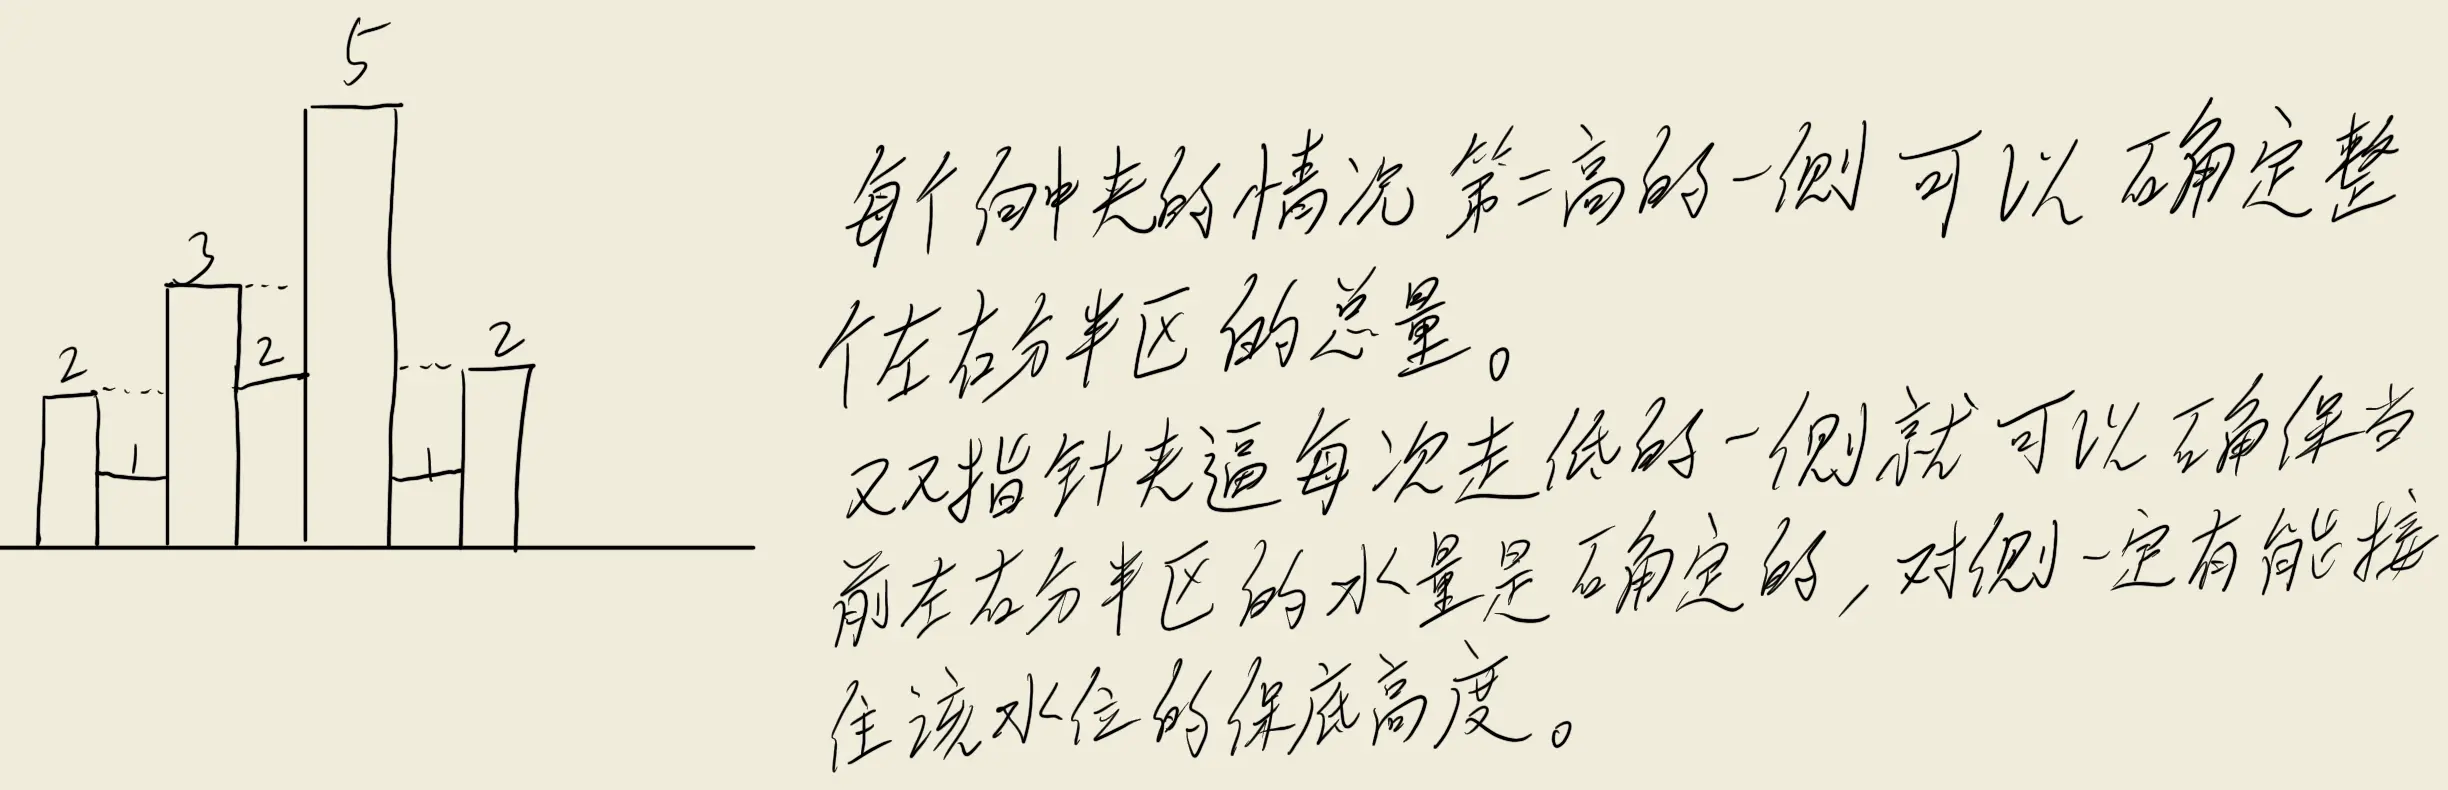 5
3
2
2
2
1
1
每个向中夹的情况 第二高的一侧 可以 确定整
个左右分半区的总量。
双指针夹逼每次走低的一侧就可以确保当
前左右分半区的水量是确定的，对侧一定有能接
住该水位的保底高度。